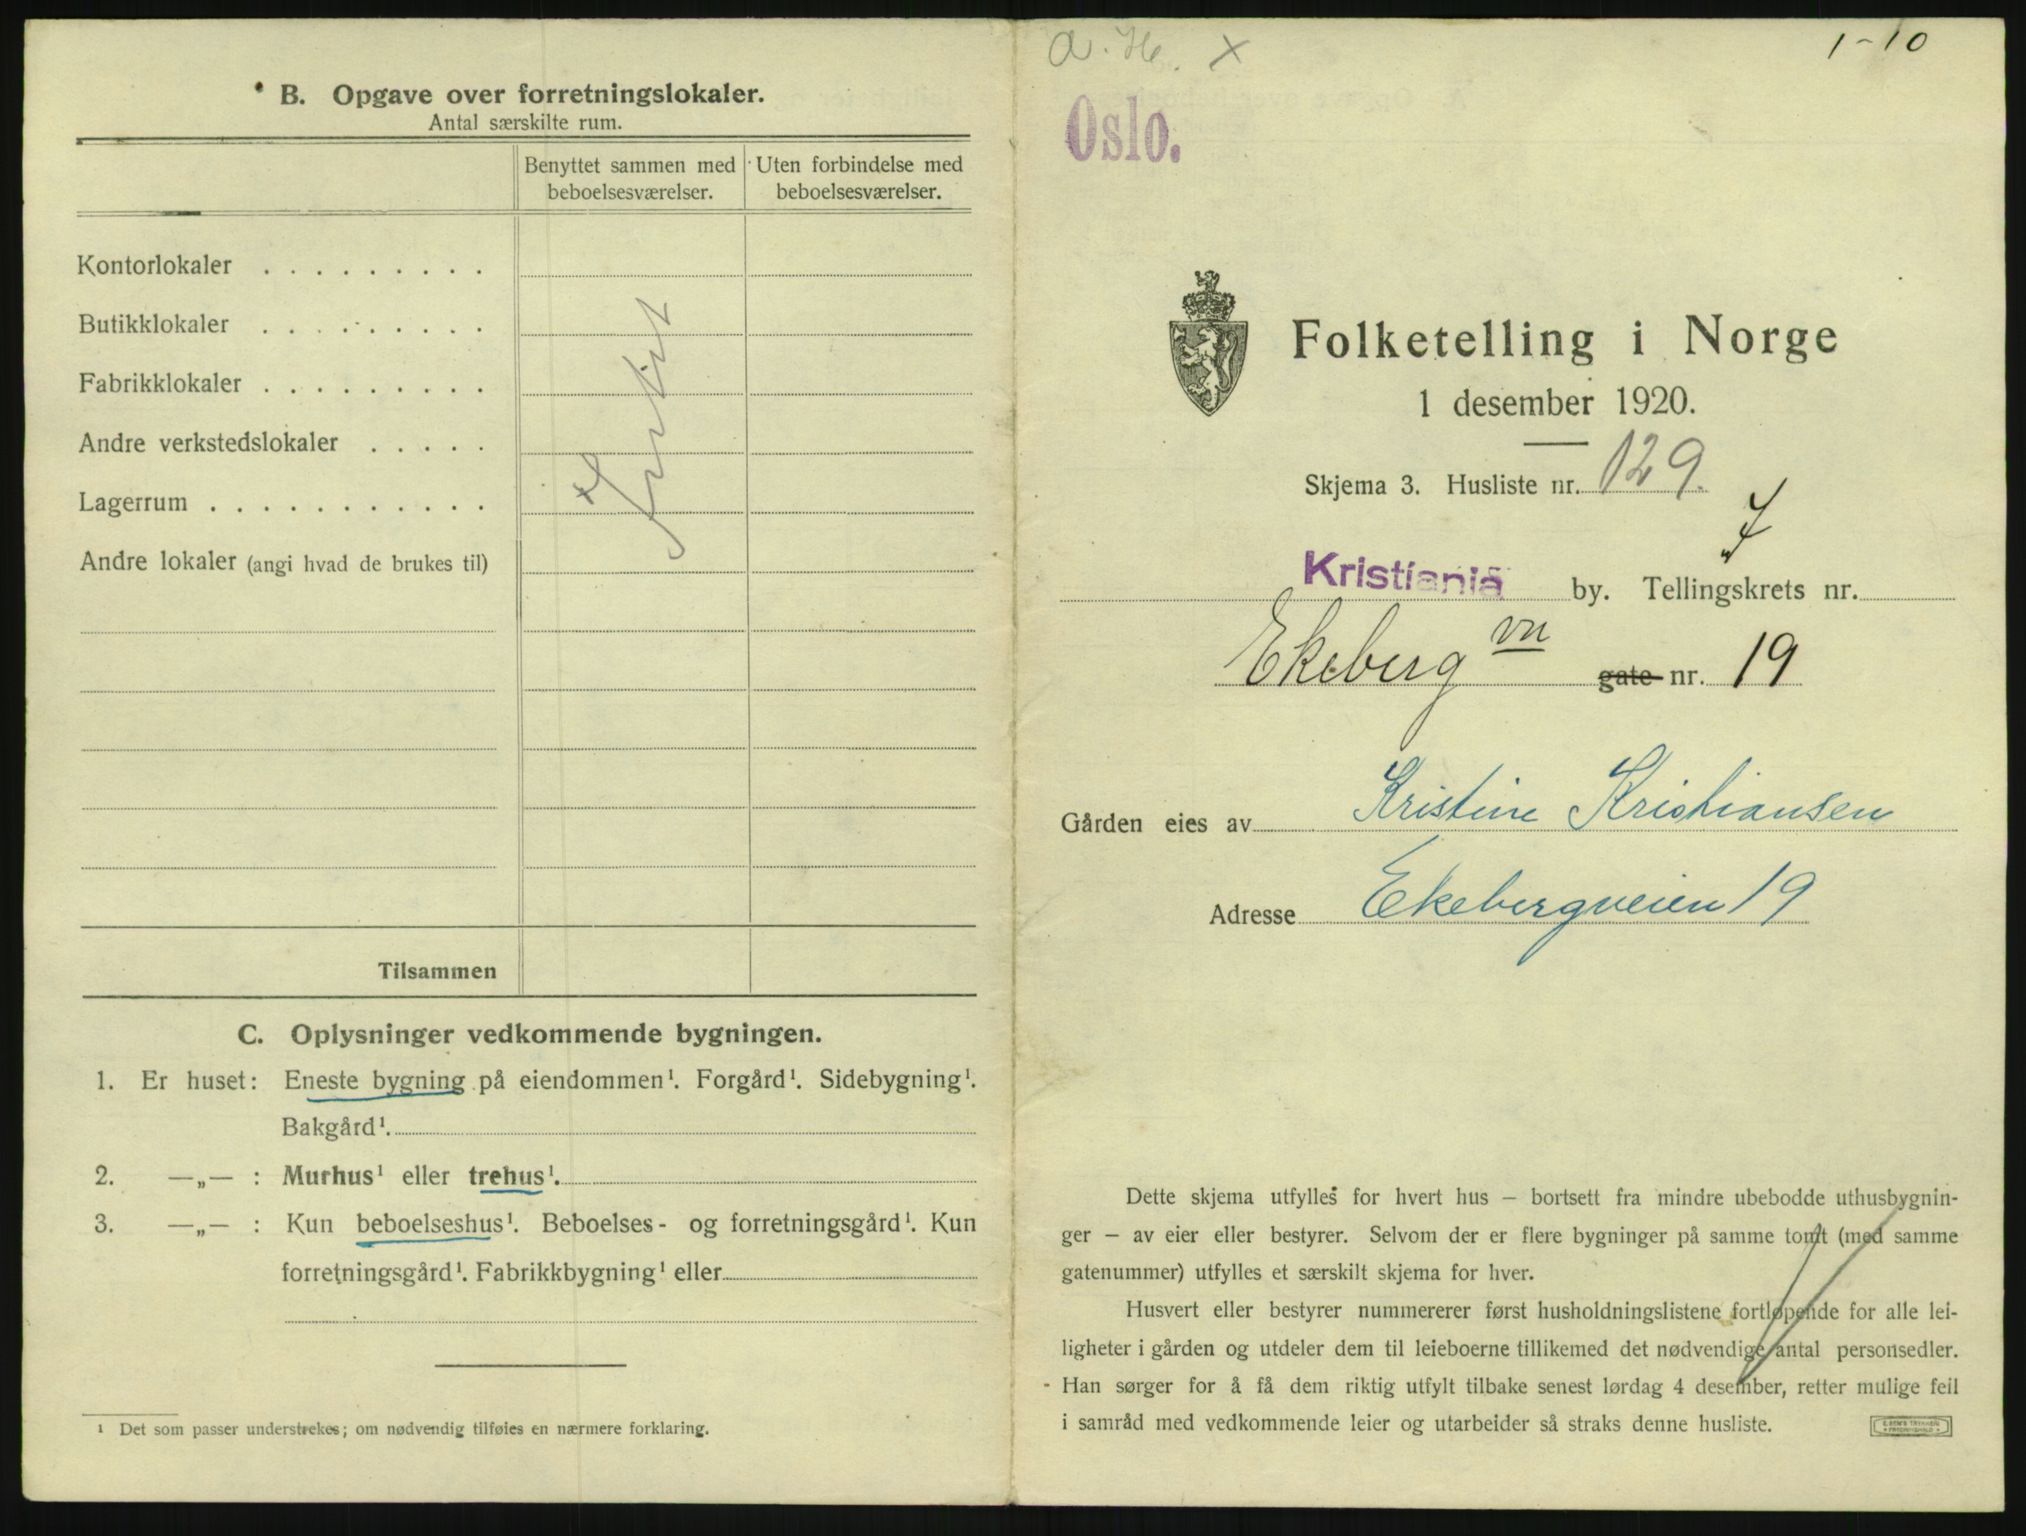 B. Opgave over forretningslokaler.
Antal særskilte rum.
Benyttet sammen med beboelsesværelser.
Uten forbindelse med beboelsesværelser.
Kontorlokaler . . . . . . . . .
Butikklokaler . . . . . . . . .
Fabrikklokaler . . . . . . . . .
Andre verkstedslokaler . . . . .
Lagerrum . . . . . . . . . . .
Andre lokaler (angi hvad de brukes til)
Tilsammen
C. Oplysninger vedkommende bygningen.
1. Er huset: Eneste bygning på eiendommen¹. Forgård¹. Sidebygning¹.
Bakgård¹.
2. —„— : Murhus¹ eller trehus¹.
3. —„— : Kun beboelseshus¹. Beboelses- og forretningsgård¹. Kun
forretningsgård¹. Fabrikkbygning¹ eller
¹ Det som passer understrekes; om nødvendig tilføies en nærmere forklaring.
x 1-10
Oslo.
Folketelling i Norge
1 desember 1920.
Skjema 3. Husliste nr. 129.
7
Kristiania by. Tellingskrets nr.
Ekeberg vn gate nr. 19
Gården eies av Kristine Kristiansen
Adresse Ekebergveien 19
Dette skjema utfylles for hvert hus – bortsett fra mindre ubebodde uthusbygnin-
ger – av eier eller bestyrer. Selvom der er flere bygninger på samme tomt (med samme
gatenummer) utfylles et særskilt skjema for hver.
Husvert eller bestyrer nummererer først husholdningslistene fortløpende for alle lei-
ligheter i gården og utdeler dem til leieboerne tillikemed det nødvendige antal personsedler.
Han sørger for å få dem riktig utfylt tilbake senest lørdag 4 desember, retter mulige feil
i samråd med vedkommende leier og utarbeider så straks denne husliste.